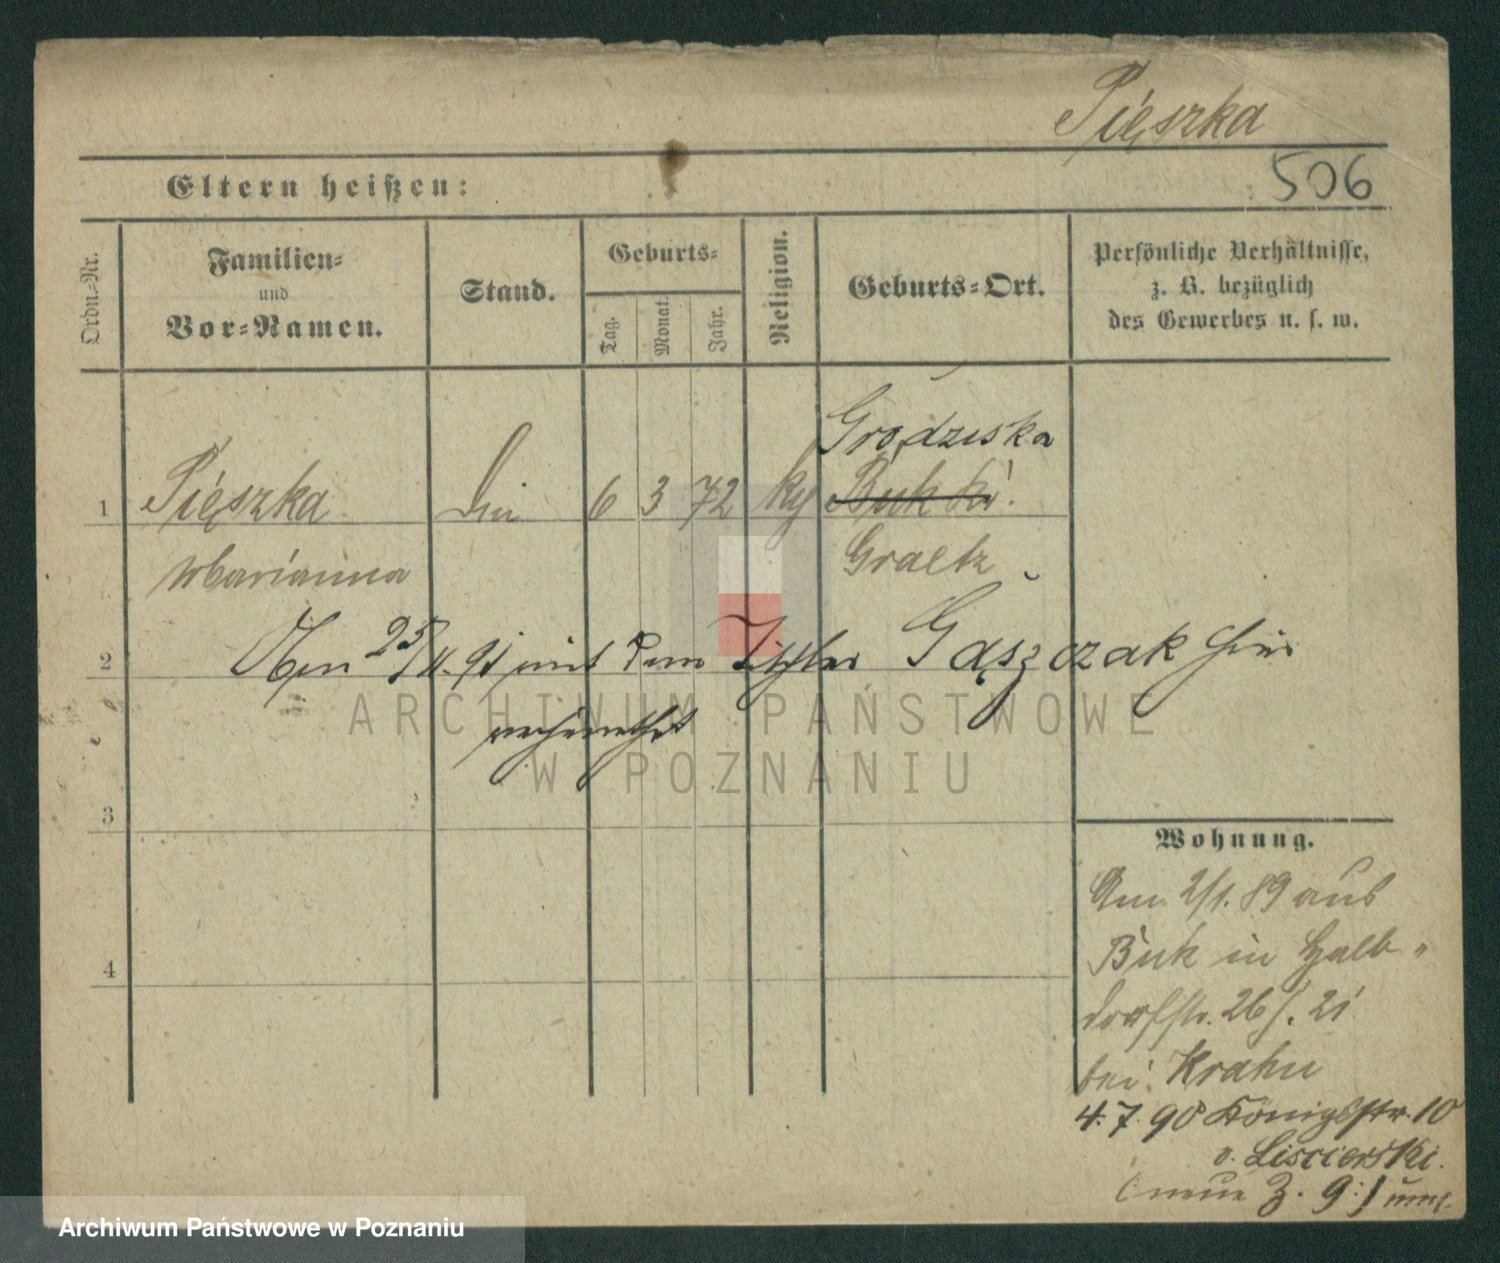 Pięszka
Eltern heißen:
506
Ordn.-Nr.
Familien-
und
Vor-Namen.
Stand.
Geburts-
Tag.
Monat.
Jahr.
Religion.
Geburts-Ort.
Persönliche Verhältnisse,
z. B. bezüglich
des Gewerbes u. s. w.
Grodziska
1 Pięszka 6 3 72 Buk
Marianna Graetz
2 25/11. 91 mit dem Tischler Gąszczak hier
verheirathet
ARCHIWUM PAŃSTWOWE
W POZNANIU
3
Wohnung.
Am 2/1. 89 aus
Buk in Halb-
dorfstr. 26
bei Krahn
4
4. 7. 90 Königsstr. 10
v. Liscierski.
neue
Archiwum Państwowe w Poznaniu